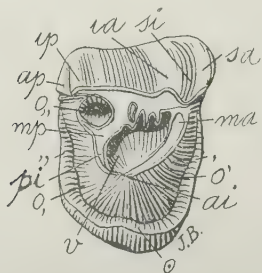 ia si
ip
sa
ap
O,,
mp
ma
,,
,
pi
O'
O,
ai
v
⊙
J.B.